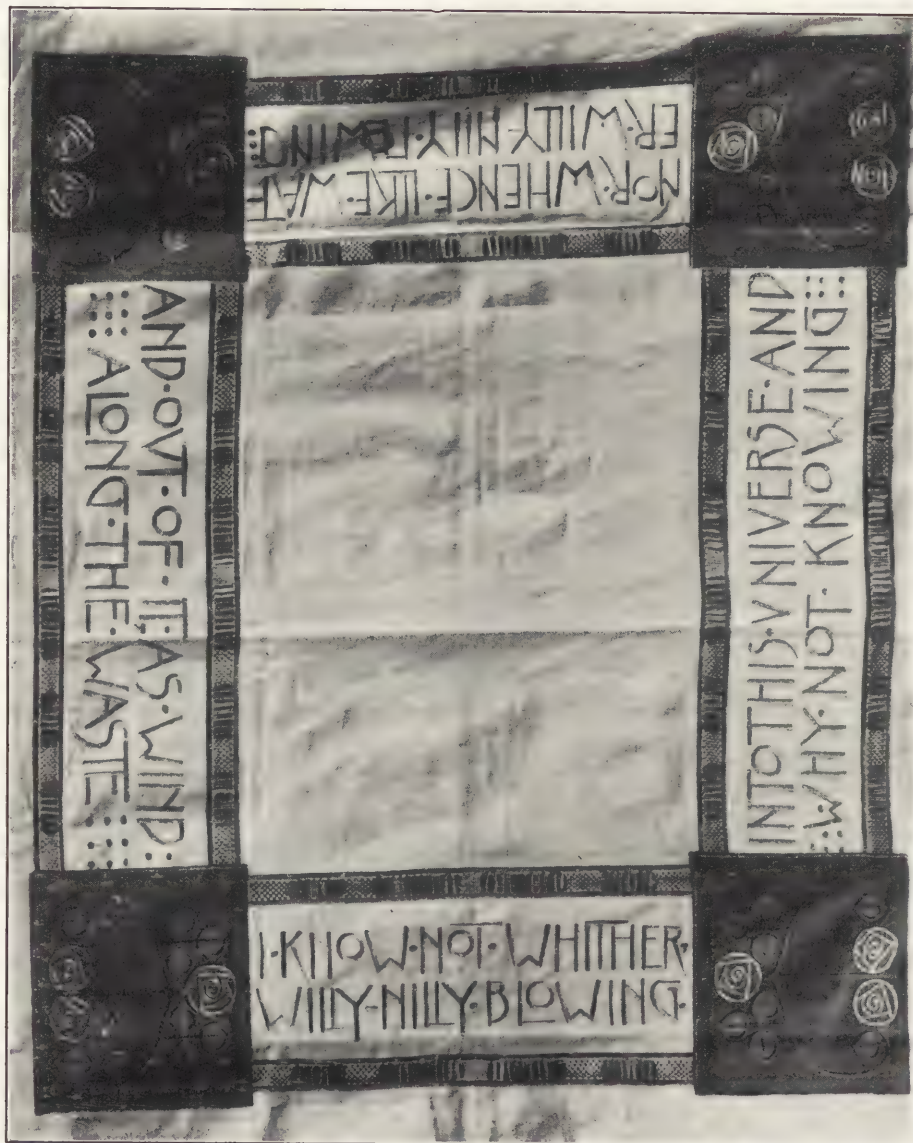 INTO THIS·VNIVERSE·AND
:::WHY·NOT·KNOWING:::
NOR·WHENCE·LIKE·WAT-
ER·WILLY·NILLY·FLOWING:::
AND·OVT·OF·IT,AS·WIND:
:::ALONG·THE·WASTE:::
I·KNOW·NOT·WHITHER·
WILLY·NILLY·BLOWING·